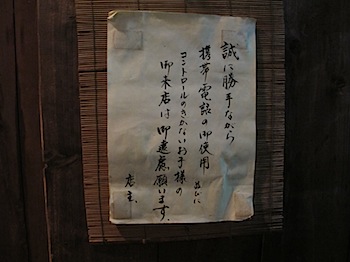 誠に勝手ながら
携帯電話の御使用
並びに
コントロールのきかないお子様の
御来店は御遠慮願います。
店主